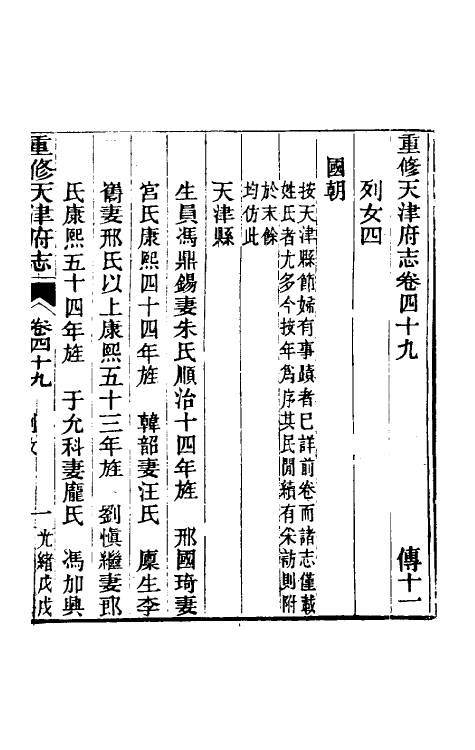 重修天津府志卷四十九　傳十一
列女四
國朝
按天津縣節婦有事蹟者已詳前卷而諸志僅載
姓氏者尤多今按年爲序其民閒續有采訪則附
於末餘
均仿此
天津縣
生員馮鼎錫妻朱氏順治十四年旌　邢國琦妻
宮氏康熙四十四年旌　韓韶妻汪氏　廩生李
妻邢氏以上康熙五十三年旌　劉愼繼妻郎
氏康熙五十四年旌　于允科妻龐氏　馮加興
重修天津府志　卷四十九　一　光緒戊戌